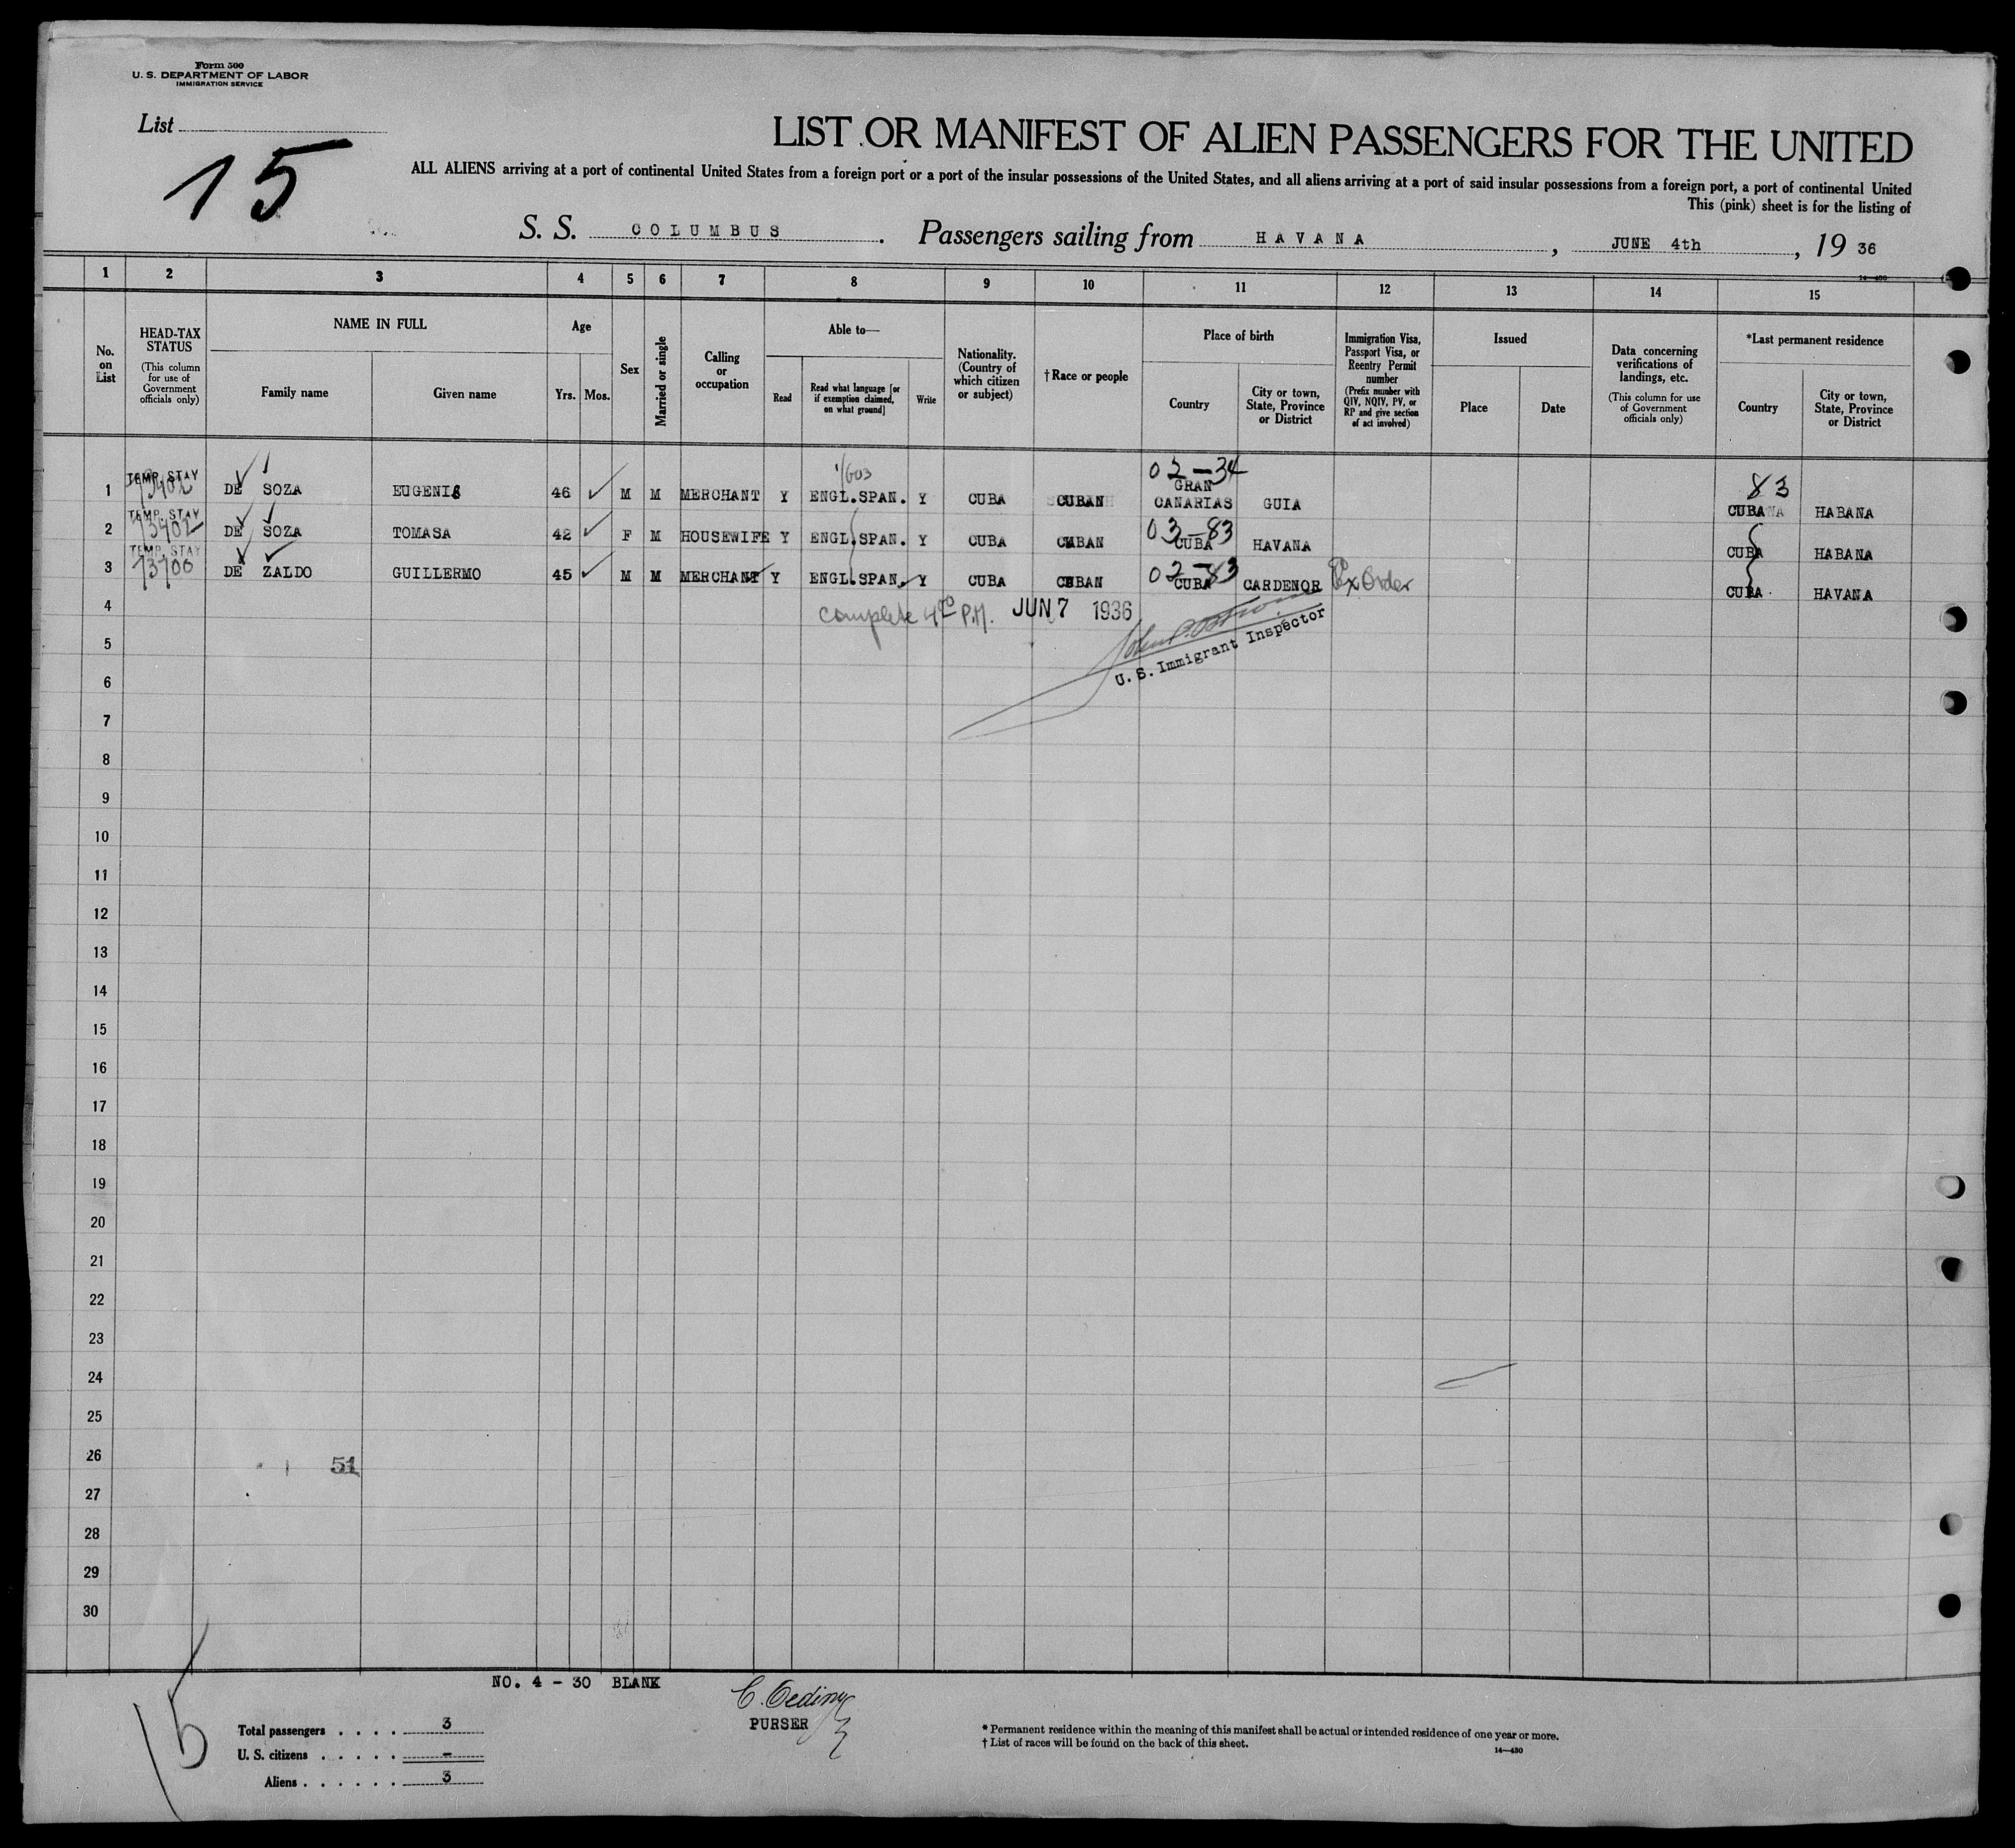 Form 500
U. S. DEPARTMENT OF LABOR
IMMIGRATION SERVICE
List
15
LIST OR MANIFEST OF ALIEN PASSENGERS FOR THE UNITED
ALL ALIENS arriving at a port of continental United States from a foreign port or a port of the insular possessions of the United States, and all aliens arriving at a port of said insular possessions from a foreign port, a port of continental United
This (pink) sheet is for the listing of
S. S. COLUMBUS. Passengers sailing from HAVANA, JUNE 4th, 19 36
14—430
1 2 3 4 5 6 7 8 9 10 11 12 13 14 15
No. on List
HEAD-TAX STATUS
(This column for use of Government officials only)
NAME IN FULL
Family name
Given name
Age
Yrs. Mos.
Sex
Married or single
Calling or occupation
Able to—
Read
Read what language [or if exemption claimed, on what ground]
Write
Nationality. (Country of which citizen or subject)
†Race or people
Place of birth
Country
City or town, State, Province or District
Immigration Visa, Passport Visa, or Reentry Permit number
(Prefix number with QIV, NQIV, PV, or RP and give section of act involved)
Issued
Place
Date
Data concerning verifications of landings, etc.
(This column for use of Government officials only)
*Last permanent residence
Country
City or town, State, Province or District
02—34 83
1 TEMP. STAY DE SOZA 46 M M MERCHANT Y ENGL.SPAN. Y CUBA CUBAN GRAN CANARIAS GUIA CUBA HABANA
03—83
2 TEMP. STAY DE SOZA TOMASA 42 F M HOUSEWIFE Y ENGL.SPAN. Y CUBA CUBAN CUBA HAVANA CUBA HABANA
02—83
3 TEMP. STAY DE ZALDO GUILLERMO 45 M M MERCHANT Y ENGL.SPAN. Y CUBA CUBAN CUBA CARDENOR Ex Order CUBA HAVANA
4 complete 4⁰⁰ P.M. JUN 7 1936
5 U. S. Immigrant Inspector
6
7
8
9
10
11
12
13
14
15
16
17
18
19
20
21
22
23
24
25
26 51
27
28
29
30
NO. 4 - 30 BLANK
15
PURSER
Total passengers . . . . 3
U. S. citizens . . . . . -
Aliens . . . . . . 3
* Permanent residence within the meaning of this manifest shall be actual or intended residence of one year or more.
† List of races will be found on the back of this sheet.
14—430